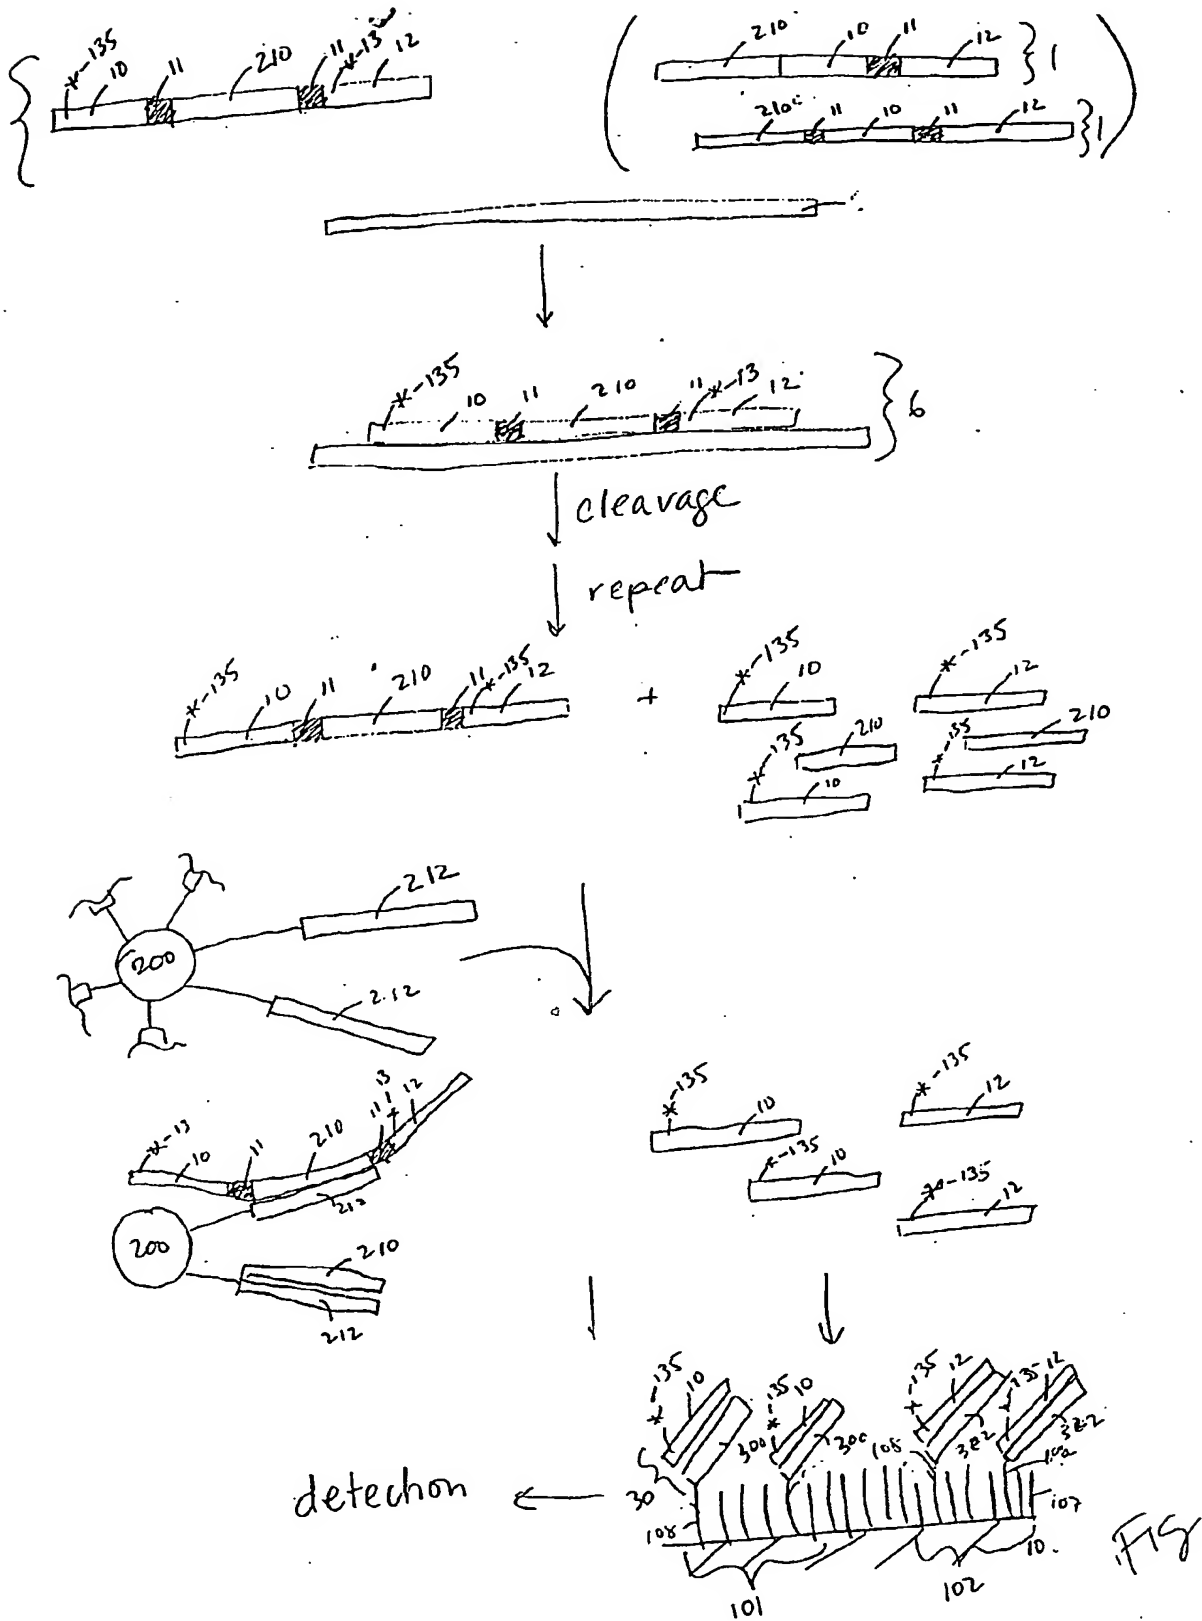 *-135 10 11 210 11 *-13 12
210 10 11 12 } 1
210 11 10 11 12 } 1
*-135 10 11 210 11 *-13 12 } 6
cleavage
repeat
*-135 10 11 210 11 *-135 12 + *-135 10 *-135 12
210 210
*-135 10 *-135 12
200 212
212
*-13 10 11 210 11 13 12
212
200 210
212
*-135 10 *-135 12
*-135 10 *-135 12
*-135 10 *-135 10 *-135 12 *-135 12
300 300 108 322 322
detection ← 30
108 107
101 102 10.
FIG